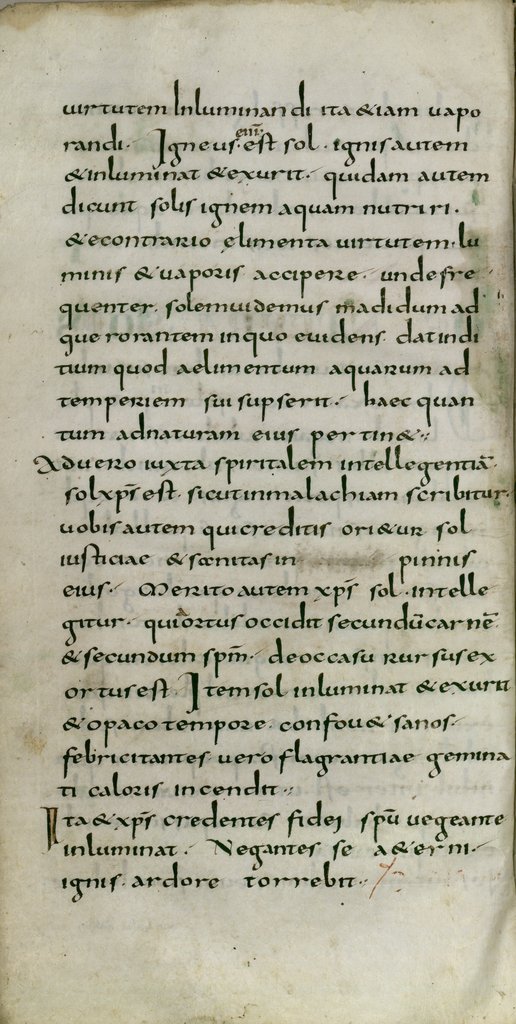 uirtutem Inluminandi ita &iam uapo
randi· Igneus enī· est sol · ignis autem
&inluminat &exurit· quidam autem
dicunt solis ignem aquam nutriri·
&econtrario elimenta uirtutem· lu
minis &uaporis accipere· unde fre
quenter· solem uidemus madidum ad
que rorantem in quo euidens dat indi
tium quod aelimentum aquarum ad
temperiem sui supserit· haec quan
tum adnaturam eius pertin&·
Aduero iuxta spiritalem intellegentiā·
sol xp̄s est· sicut in malachiam scribitur·
uobis autem qui creditis ori&ur sol
iusticiae &sænitas in pinnis
eius· Merito autem xp̄s sol· intelle
gitur· quia ortus occidit secundū carnē
&secundum sp̄m· de occasu rursus ex
ortus est· Item sol inluminat &exurit
&opaco tempore· confou& sanos·
febricitantes uero flagrantiae gemina
ti caloris incendit·
Ita &xp̄s credentes fidei spū uegeante
inluminat· Negantes se a&erni·
ignis· ardore torrebit·